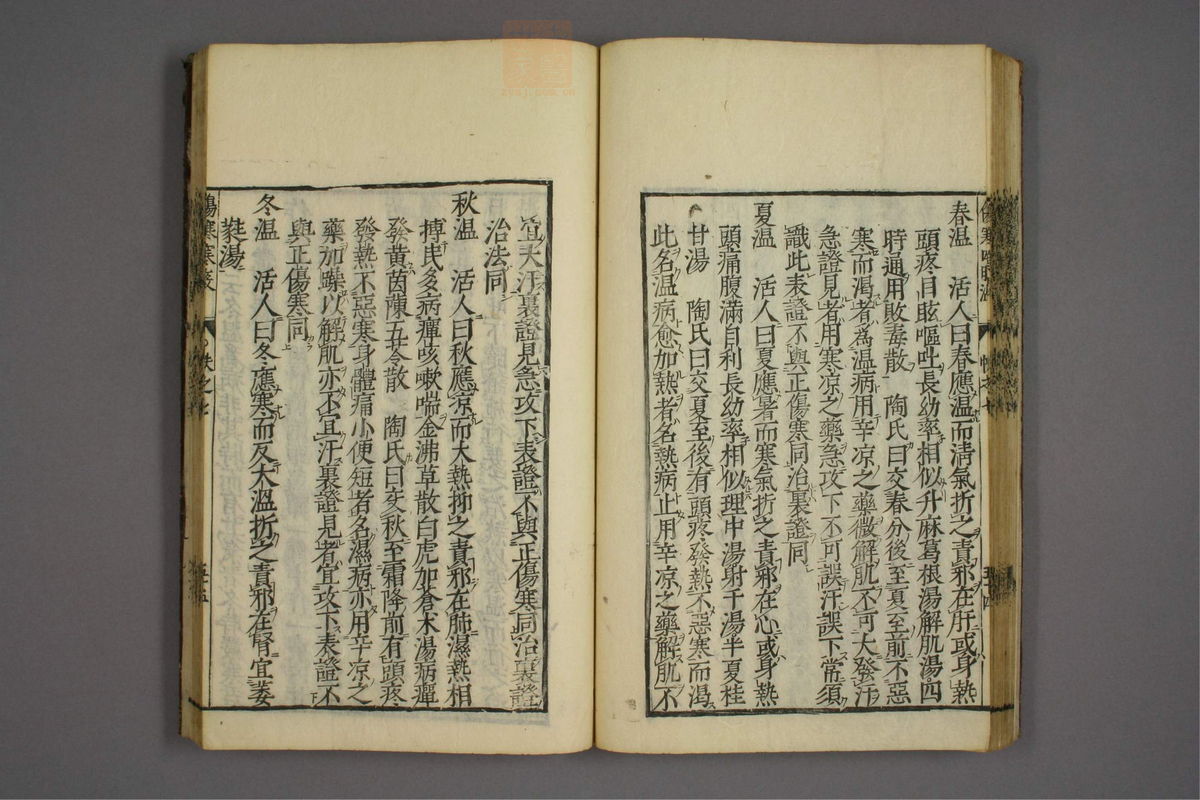 春温　活人曰春應温而清氣折之責邪在肝或身熱
頭疼目眩嘔吐長幼率相似升麻葛根湯解肌湯四
時通用敗毒散　陶氏曰交春分後至夏至前不惡
寒而渴者爲温病用辛凉之藥微解肌不可大發汗
急證見者用寒凉之藥急攻下不可誤汗誤下常須
識此表證不與正傷寒同治裏證同
夏温　活人曰夏應暑而寒氣折之責邪在心或身熱
頭痛腹滿自利長幼率相似理中湯射干湯半夏桂
甘湯　陶氏曰交夏至後有頭疼發熱不惡寒而渴
此名温病愈加熱者名熱病止用辛凉之藥解肌不
宜大汗裏證見急攻下表證不與正傷寒同治裏證
治法同
秋温　活人曰秋應凉而大熱抑之責邪在肺濕熱相
搏民多病癉咳嗽喘金沸草散白虎加倉术湯病癉
發黃茵蔯五苓散　陶氏曰交秋至霜降前有頭疼
發熱不惡寒身體痛小便短者名濕病亦用辛凉之
藥加燥以解肌亦不宜汗裏證見者宜攻下表證不
與正傷寒同
冬温　活人曰冬應寒而反大温折之責邪在腎宜葳
蕤湯